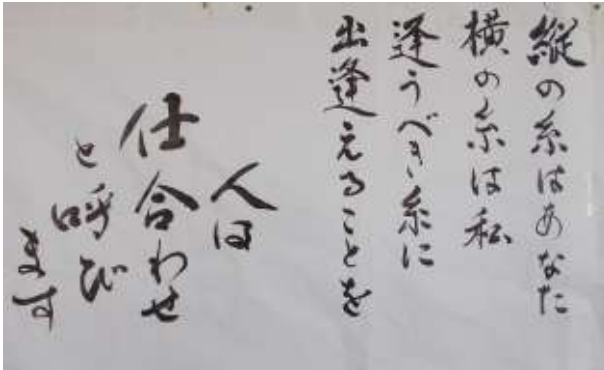 縦の糸はあなた
横の糸は私
逢うべき糸に
出逢えることを
人は
仕合わせ
と呼び
ます